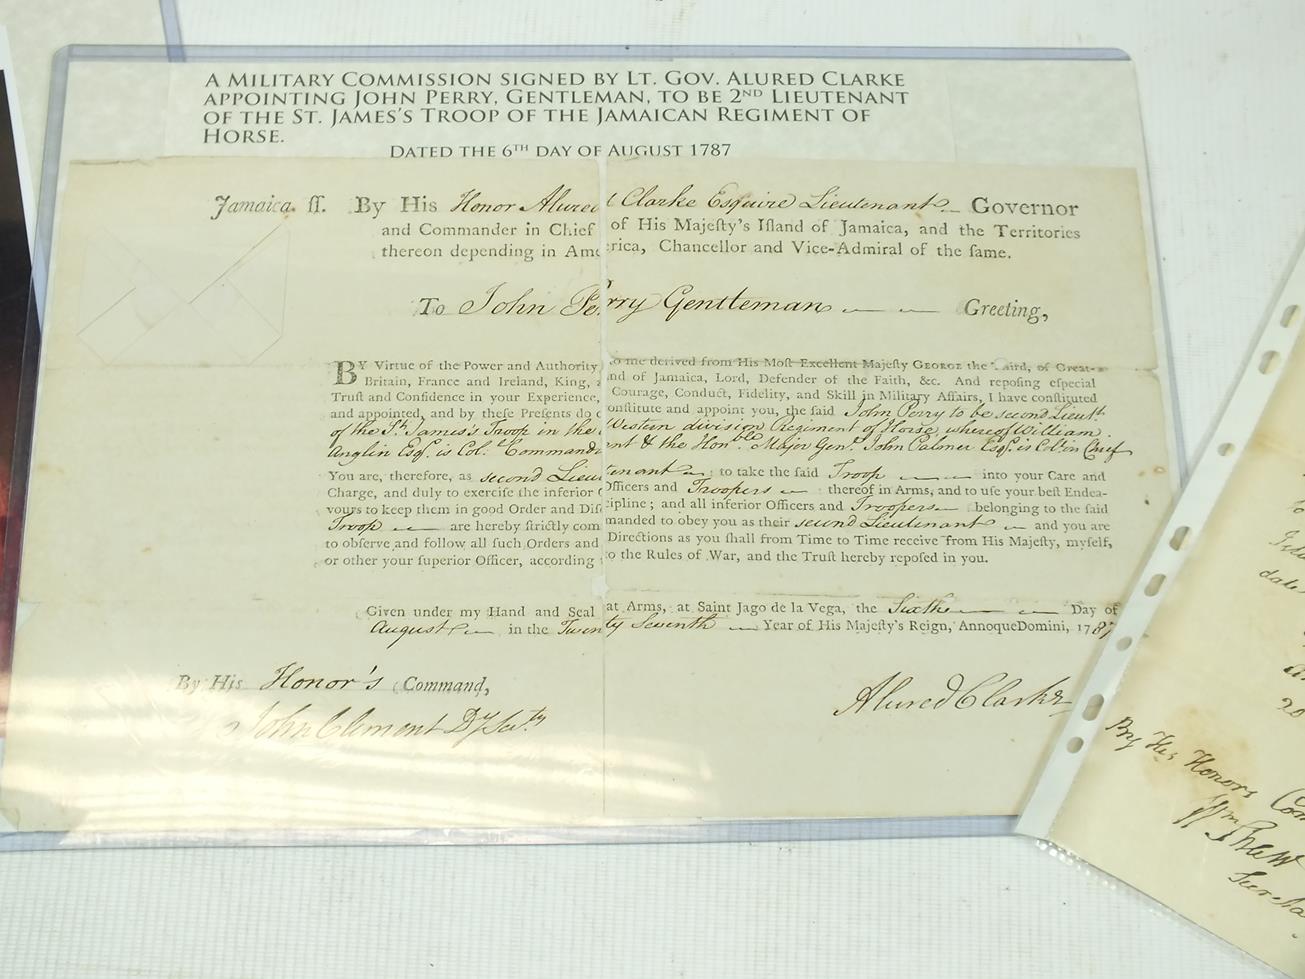 A MILITARY COMMISSION SIGNED BY LT. GOV. ALURED CLARKE
APPOINTING JOHN PERRY, GENTLEMAN, TO BE 2ND LIEUTENANT
OF THE ST. JAMES'S TROOP OF THE JAMAICAN REGIMENT OF
HORSE.
DATED THE 6TH DAY OF AUGUST 1787
Jamaica ſſ. By His Honor Alured Clarke Esquire Lieutenant Governor
and Commander in Chief of His Majeſty's Iſland of Jamaica, and the Territories
thereon depending in America, Chancellor and Vice-Admiral of the ſame.
To John Perry Gentleman Greeting,
BY Virtue of the Power and Authority to me derived from His Moſt Excellent Majeſty GEORGE the Third, of Great-
Britain, France and Ireland, King, and of Jamaica, Lord, Defender of the Faith, &c. And repoſing eſpecial
Truſt and Confidence in your Experience, Courage, Conduct, Fidelity, and Skill in Military Affairs, I have conſtituted
and appointed, and by theſe Preſents do conſtitute and appoint you, the ſaid John Perry to be second Lieut
of the St. James's Troop in the Western division Regiment of Horse, whereof William
Anglin Esqr. is Col. Commandent & the Honble Major Genl. John Palmer Esqr. is Col. in Chief
You are, therefore, as second Lieutenant to take the ſaid Troop into your Care and
Charge, and duly to exerciſe the inferior Officers and Troopers thereof in Arms, and to uſe your beſt Endea-
vours to keep them in good Order and Diſcipline; and all inferior Officers and Troopers belonging to the ſaid
Troop are hereby ſtrictly commanded to obey you as their second Lieutenant and you are
to obſerve and follow all ſuch Orders and Directions as you ſhall from Time to Time receive from His Majeſty, myſelf,
or other your ſuperior Officer, according to the Rules of War, and the Truſt hereby repoſed in you.
Given under my Hand and Seal at Arms, at Saint Jago de la Vega, the Sixth Day of
August in the Twenty Seventh Year of His Majeſty's Reign, AnnoqueDomini, 1787
By His Honor's Command,
Alured Clarke
John Clement Dy Secty
By His Honors
Wm Shaw